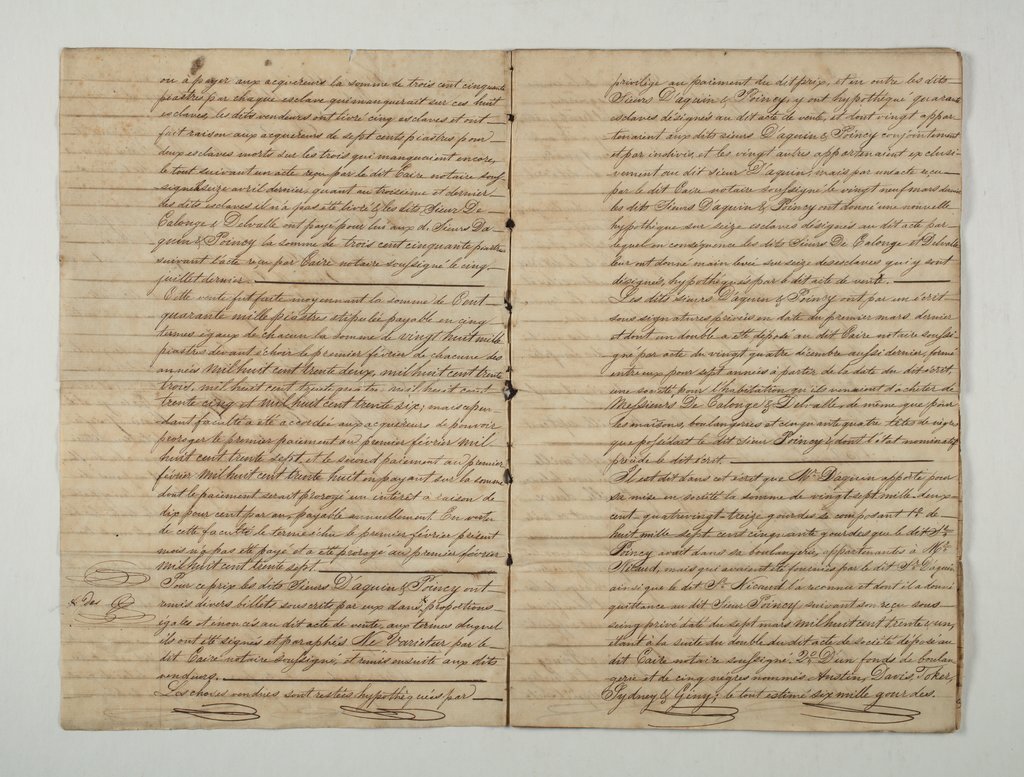 ou a payer aux acquereurs la somme de trois cent cinquante
piastres par chaque esclave qui manquerait sur ces huit
esclaves, les dits vendeurs ont livré cinq esclaves et ont
fait raison aux acquereurs de sept cents piastres pour
deux esclaves morts sur les trois qui manquaient encore,
le tout suivant un acte reçu par le dit Caire notaire sous
signé seize avril dernier, quant au troisieme et dernier
les dits esclaves il n'a pas été livré & les dits Sieur De
Calonge & Delvalle ont payé pour lui aux d. Sieurs Da-
quin & Poincy la somme de trois cent cinquante piastres
suivant l'acte reçu par Caire notaire soussigné le cinq
juillet dernier.
Cette vente fut faite moyennant la somme de Cent
quarante mille piastres stipulée payable en cinq
termes égaux de chacun la somme de vingt huit mille
piastres devant échoir le premier février de chacune des
années mil huit cent trente deux, mil huit cent trente
trois, mil huit cent trente quatre, mil huit cent
trente cinq et mil huit cent trente six; mais cepen-
dant faculté a été accordée aux acquereurs de pouvoir
proroger le premier paiement au premier février mil
huit cent trente sept et le second paiement au premier
février mil huit cent trente huit en payant sur la somme
dont le paiement serait prorogé un intérêt à raison de
dix pour cent par an, payable annuellement. En vertu
de cette faculté le terme échu le premier février présent
mois n'a pas été payé et a été prorogé au premier février
mil huit cent trente sept.
Pour ce prix les dits Sieurs D'aquin & Poincy ont
remis divers billets souscrits par eux dans proportions
& des
égales et énoncés au dit acte de vente, aux termes duquel
ils ont été signés et paraphés Ne Varietur par le
dit Caire notaire soussigné, et remis ensuite aux dits
vendeurs.
Les choses vendues sont restées hypothéquées par
privilège au paiement du dit prix, et en outre les dits
Sieurs D'aquin & Poincy, y ont hypothéqué quarante
esclaves désignés au dit acte de vente, et dont vingt appar-
tenaient aux dits sieurs D'aquin & Poincy conjointement
et par indivis, et les vingt autres appartenaient exclusi-
vement au dit sieur D'aquin, mais par un acte reçu
par le dit Caire notaire soussigné le vingt neuf mars dernier
les dits Sieurs D'aquin & Poincy ont donné une nouvelle
hypothèque sur seize esclaves désignés au dit acte par
lequel en conséquence les dits Sieurs De Calonge et Delvalle
leur ont donné main levée sur seize des esclaves qui y sont
désignés, hypothéqués par le dit acte de vente.
Les dits sieurs D'aquin & Poincy ont par un écrit
sous signatures privées en date du premier mars dernier
et dont un double a été déposé au dit Caire notaire soussi-
gné par acte du vingt quatre décembre aussi dernier, formé
entre eux pour sept années à partir de la date du dit écrit
une société pour l'habitation qu'ils venaient d'acheter de
Messieurs De Calonge & Delvalle, de même que pour
les maisons, boulangeries et cinquante quatre têtes de nègres
que possedait le dit Sieur Poincy & dont l'état nominatif
précède le dit écrit.
Il est dit dans cet écrit que Mr. Daquin apporte pour
sa mise en société la somme de vingt sept mille deux
cent quatrevingt treize gourdes se composant 1o. de
huit mille sept cent cinquante gourdes que le dit Sr.
Poincy avait dans sa boulangerie, appartenantes à Mr.
Ricaud, mais qui avaient été fournies par le dit Sr. Daquin
ainsi que le dit Sr. Ricaud l'a reconnu et dont il a donné
quittance au dit Sieur Poincy, suivant son reçu sous
seing privé daté du sept mars mil huit cent trente un,
étant à la suite du double du dit acte de société déposé au
dit Caire notaire soussigné. 2o. D'un fonds de boulan
gerie et de cinq nègres nommés Austin, Davis, Toker,
Sydney & Giny; le tout estimé six mille gourdes.